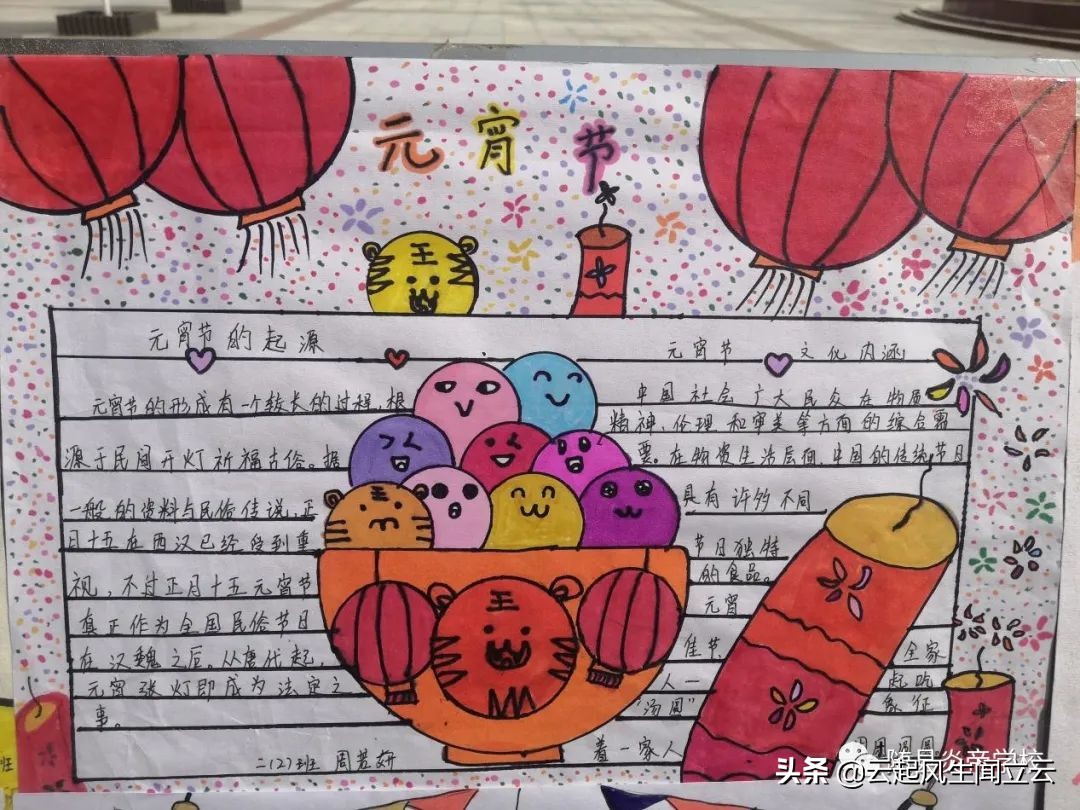 元宵节
王
元宵节的起源
元宵节的形成有一个较长的过程,根
源于民间开灯祈福古俗。据
一般的资料与民俗传说,正
月十五在西汉已经受到重
视,不过正月十五元宵节
真正作为全国民俗节日
在汉魏之后。从唐代起,
元宵张灯即成为法定之
事。
二(2)班 周芸妍
王
王
元宵节 文化内涵
中国社会广大民众在物质
精神、伦理和审美等方面的综合需
要。在物质生活层面,中国的传统节日
具有许多不同
节日独特
的食品。
元宵
佳节, 全家
人一 起吃
“汤圆” 象征
着一家人 团团圆圆
班
随县炎帝学校
头条 @云起风生闻立云